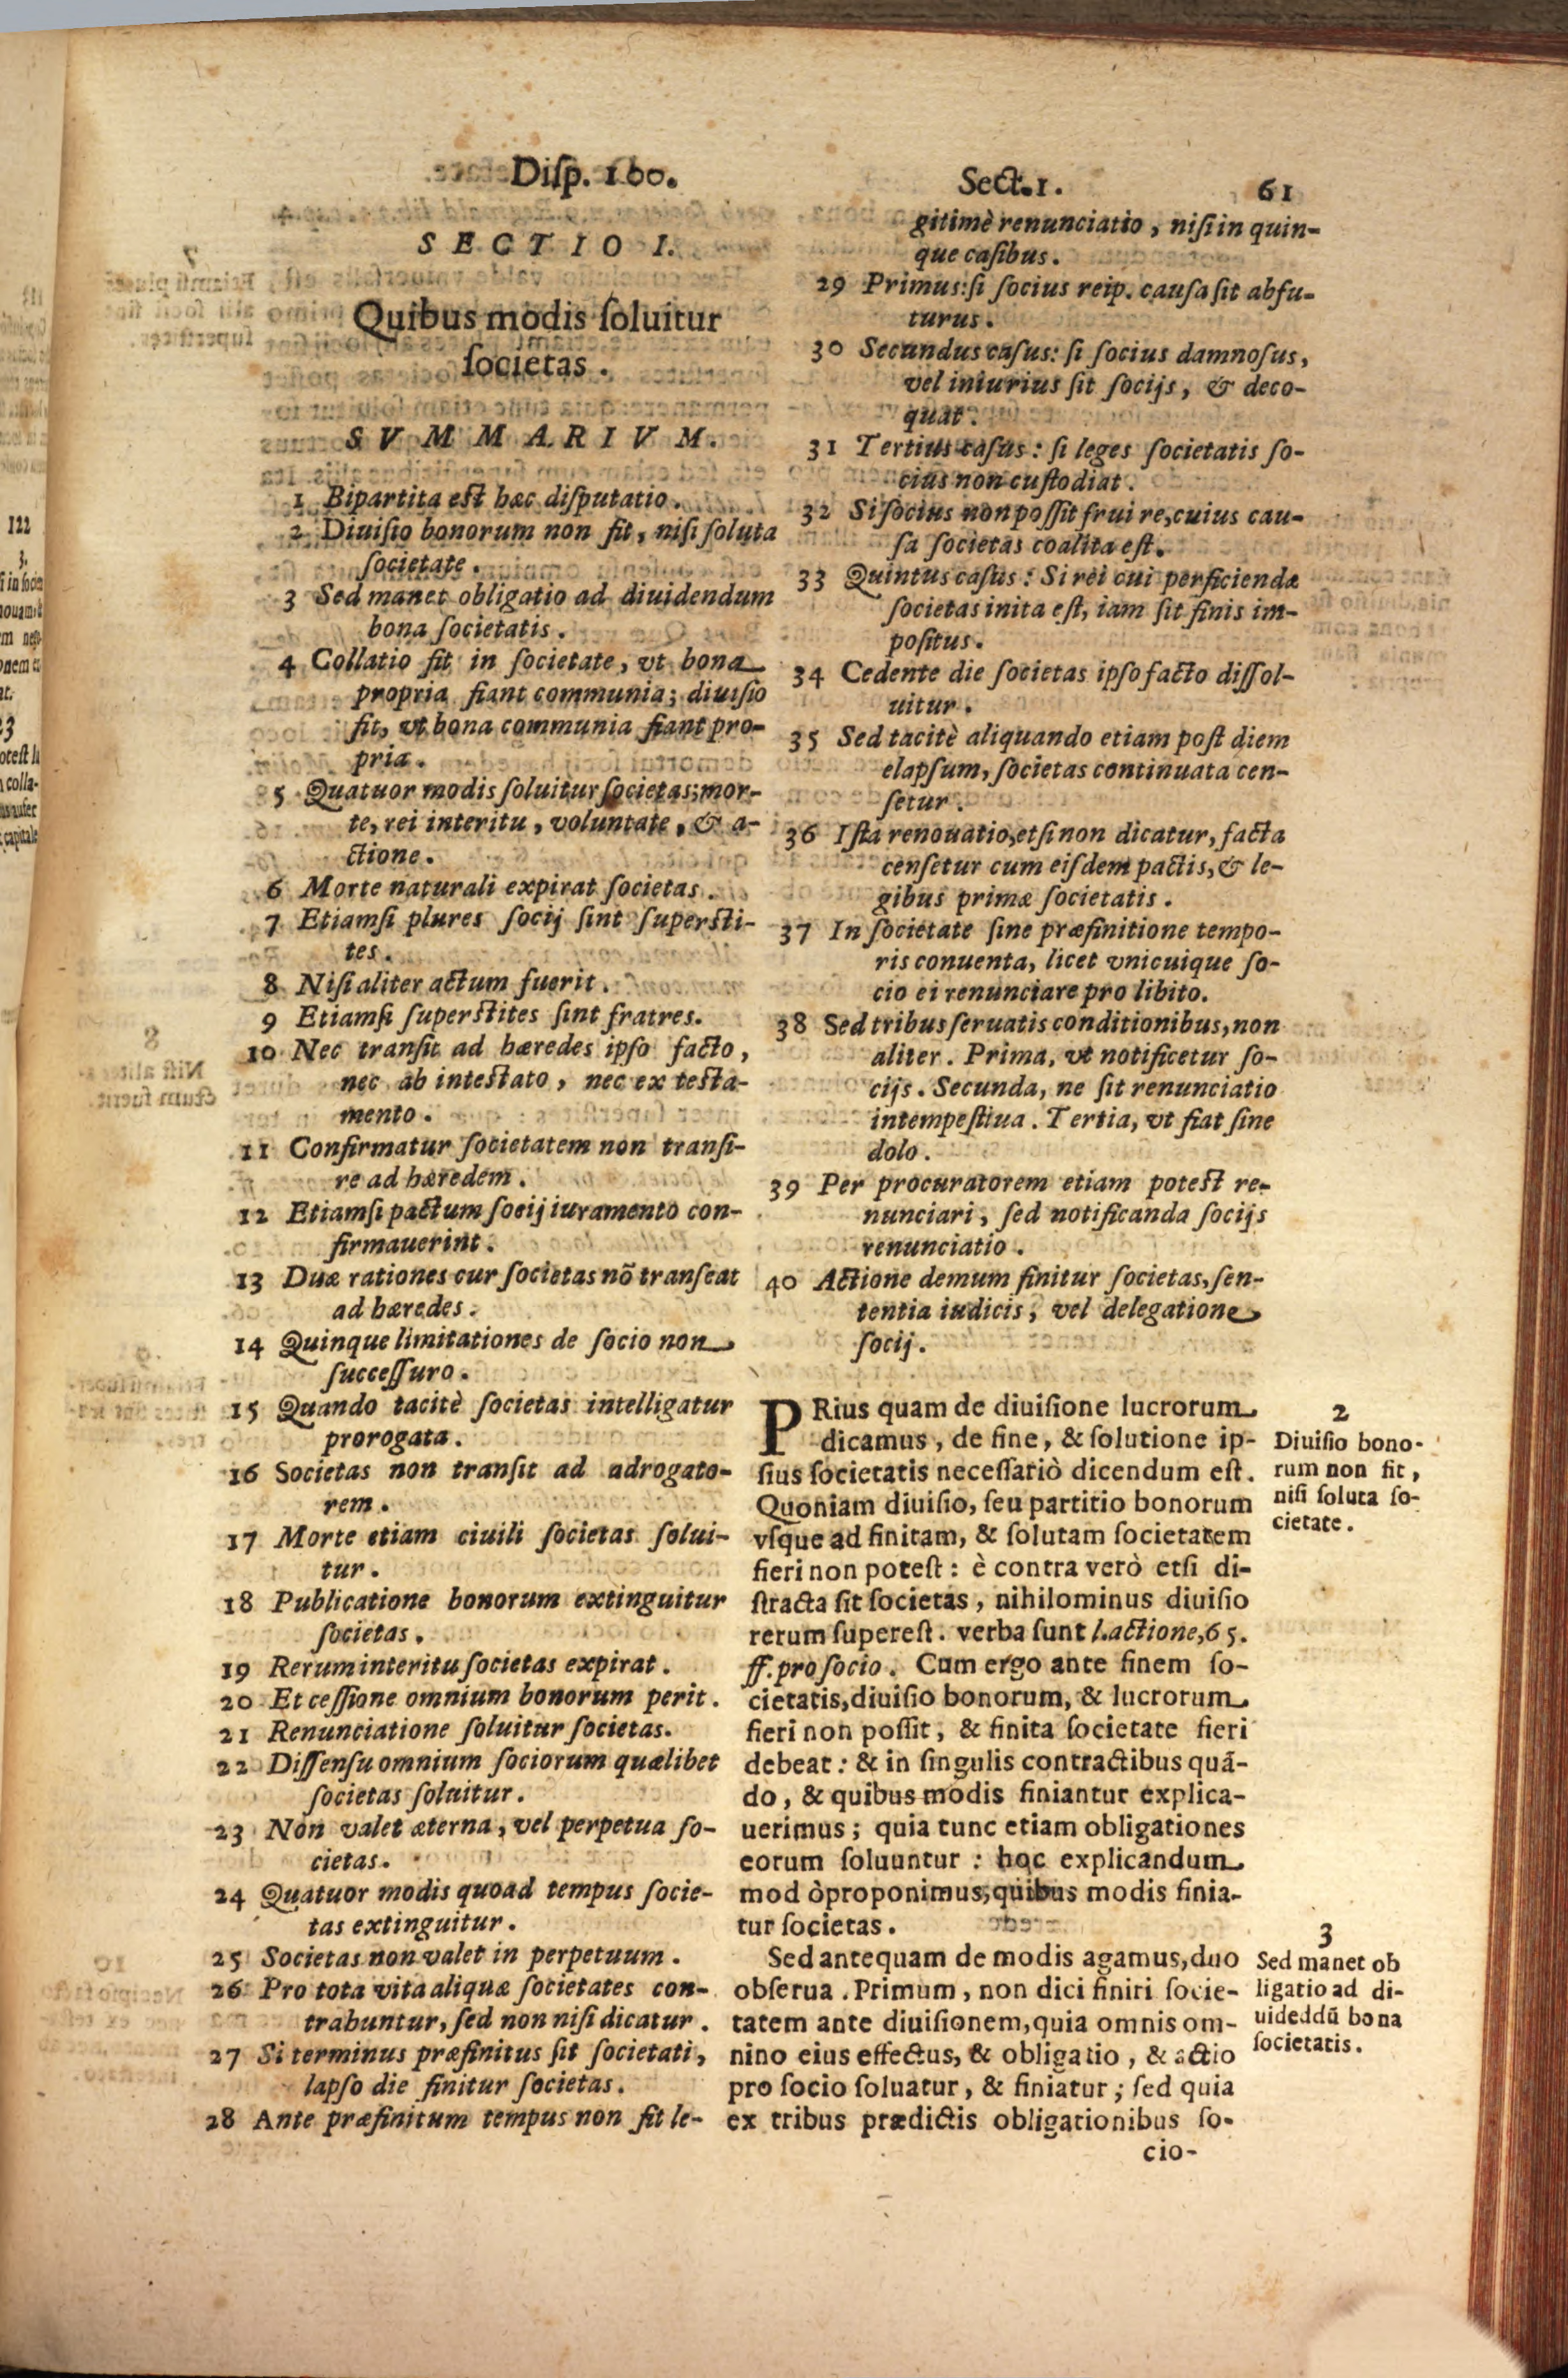 Diſp. 100.
Sect. 1. 61
SECTIO I.
Quibus modis ſoluitur
ſocietas.
SVMMARIVM.
1 Bipartita est hæc diſputatio.
2 Diuiſio bonorum non fit, niſi ſoluta
ſocietate.
3 Sed manet obligatio ad diuidendum
bona ſocietatis.
4 Collatio fit in ſocietate, vt bona
propria fiant communia; diuiſio
fit, vt bona communia fiant pro-
pria.
5 Quatuor modis ſoluitur ſocietas; mor-
te, rei interitu, voluntate, & a-
ctione.
6 Morte naturali expirat ſocietas.
7 Etiamſi plures ſocij ſint ſupersti-
tes.
8 Niſi aliter actum fuerit.
9 Etiamſi ſuperstites ſint fratres.
10 Nec tranſit ad hæredes ipſo facto,
nec ab intestato, nec ex testa-
mento.
11 Confirmatur ſocietatem non tranſi-
re ad hæredem.
12 Etiamſi pactum ſocij iuramento con-
firmauerint.
13 Duæ rationes cur ſocietas nõ tranſeat
ad hæredes.
14 Quinque limitationes de ſocio non
ſucceſſuro.
15 Quando tacitè ſocietas intelligatur
prorogata.
16 Societas non tranſit ad adrogato-
rem.
17 Morte etiam ciuili ſocietas ſolui-
tur.
18 Publicatione bonorum extinguitur
ſocietas.
19 Rerum interitu ſocietas expirat.
20 Et ceſſione omnium bonorum perit.
21 Renunciatione ſoluitur ſocietas.
22 Diſſenſu omnium ſociorum quælibet
ſocietas ſoluitur.
23 Non valet æterna, vel perpetua ſo-
cietas.
24 Quatuor modis quoad tempus ſocie-
tas extinguitur.
25 Societas non valet in perpetuum.
26 Pro tota vita aliquæ ſocietates con-
trahuntur, ſed non niſi dicatur.
27 Si terminus præfinitus ſit ſocietati,
lapſo die finitur ſocietas.
28 Ante præfinitum tempus non fit le-
gitimè renunciatio, niſi in quin-
que caſibus.
29 Primus: ſi ſocius reip. cauſa ſit abfu-
turus.
30 Secundus caſus: ſi ſocius damnoſus,
vel iniurius ſit ſocijs, & deco-
quat.
31 Tertius caſus: ſi leges ſocietatis ſo-
cius non cuſtodiat.
32 Si ſocius non poſſit frui re, cuius cau-
ſa ſocietas coalita eſt.
33 Quintus caſus: Si rei cui perficiendæ
ſocietas inita eſt, iam ſit finis im-
poſitus.
34 Cedente die ſocietas ipſo facto diſſol-
uitur.
35 Sed tacitè aliquando etiam poſt diem
elapſum, ſocietas continuata cen-
ſetur.
36 Iſta renouatio, etſi non dicatur, facta
cenſetur cum eiſdem pactis, & le-
gibus primæ ſocietatis.
37 In ſocietate ſine præfinitione tempo-
ris conuenta, licet vnicuique ſo-
cio ei renunciare pro libito.
38 Sed tribus ſeruatis conditionibus, non
aliter. Prima, vt notificetur ſo-
cijs. Secunda, ne ſit renunciatio
intempeſtiua. Tertia, vt fiat ſine
dolo.
39 Per procuratorem etiam potest re-
nunciari, ſed notificanda ſocijs
renunciatio.
40 Actione demum finitur ſocietas, ſen-
tentia iudicis, vel delegatione
ſocij.
PRius quam de diuiſione lucrorum
dicamus, de fine, & ſolutione ip-
ſius ſocietatis neceſſariò dicendum eſt.
Quoniam diuiſio, ſeu partitio bonorum
vſque ad finitam, & ſolutam ſocietatem
fieri non poteſt: è contra verò etſi di-
ſtracta ſit ſocietas, nihilominus diuiſio
rerum ſupereſt. verba ſunt l. actione, 65.
ff. pro ſocio. Cum ergo ante finem ſo-
cietatis, diuiſio bonorum, & lucrorum
fieri non poſſit, & finita ſocietate fieri
debeat: & in ſingulis contractibus quã-
do, & quibus modis finiantur explica-
uerimus; quia tunc etiam obligationes
eorum ſoluuntur: hoc explicandum
mod òproponimus, quibus modis finia-
tur ſocietas.
Sed antequam de modis agamus, duo
obſerua. Primum, non dici finiri ſocie-
tatem ante diuiſionem, quia omnis om-
nino eius effectus, & obligatio, & actio
pro ſocio ſoluatur, & finiatur; ſed quia
ex tribus prædictis obligationibus ſo-
cio-
2
Diuiſio bono-
rum non fit,
niſi ſoluta ſo-
cietate.
3
Sed manet ob
ligatio ad di-
uideddũ bona
ſocietatis.